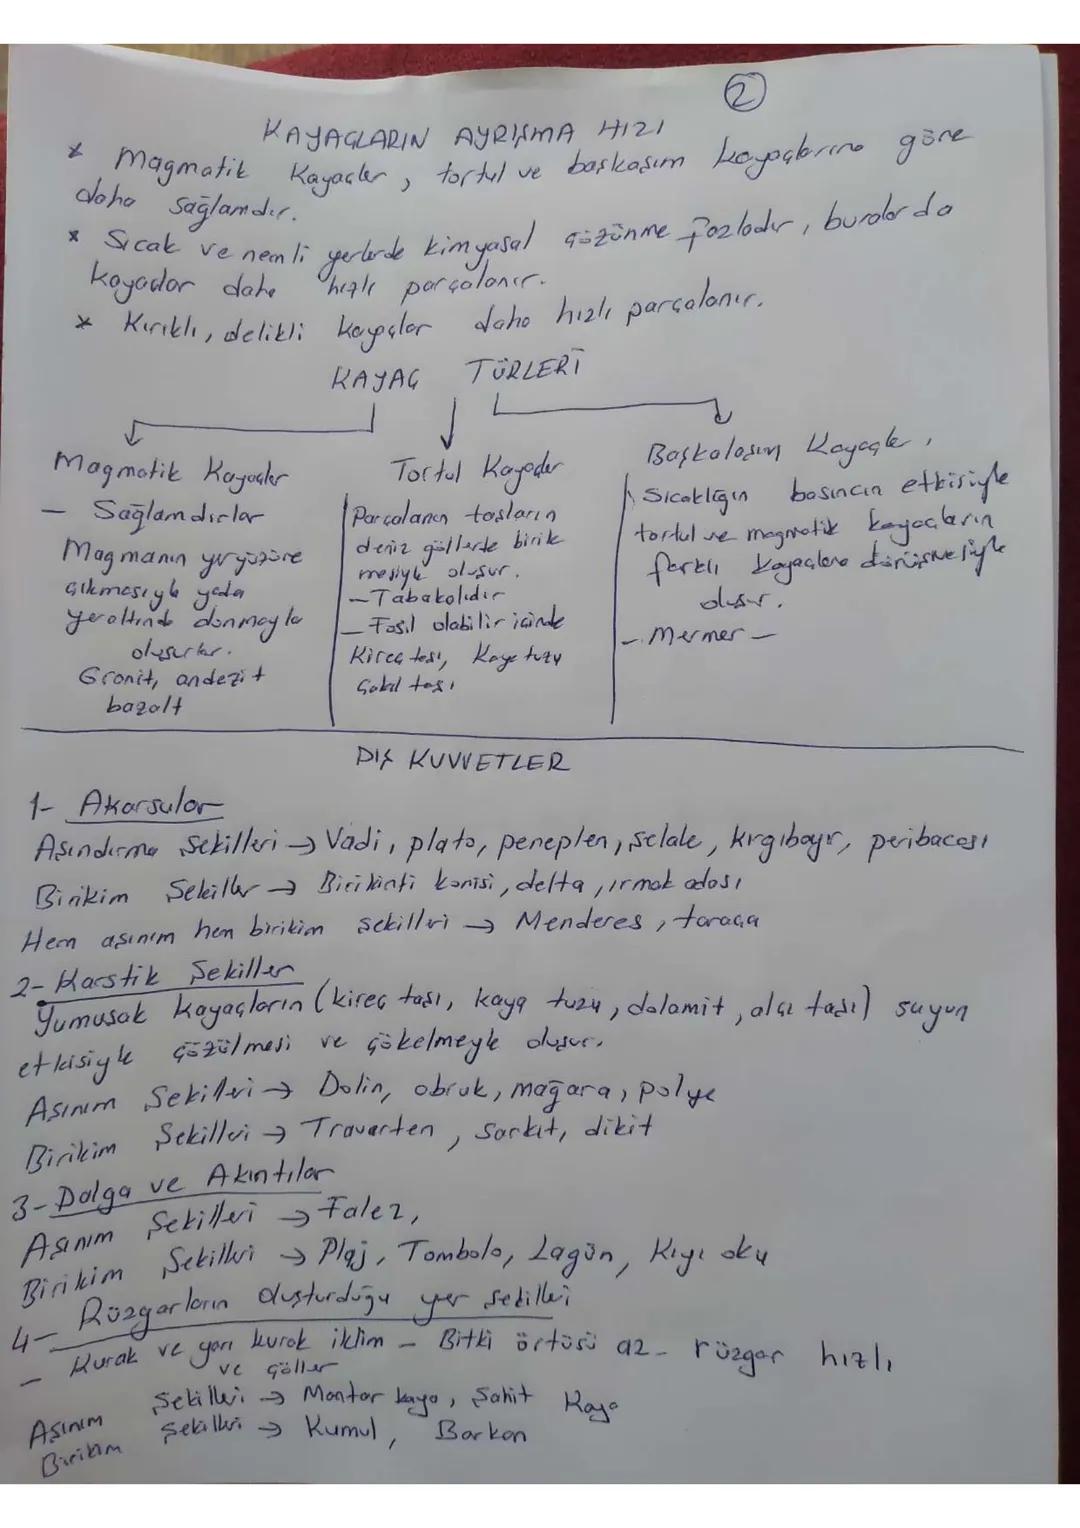 2
KAYAÇLARIN AYRIŞMA HIZI
* Magmatik Kayaçlar, tortul ve başkaşım kayaçlarına göre
daha sağlamdır.
* Sıcak ve nemli yerlerde kimyasal çözünme fazladır, buralarda
kayaçlar daha hızlı parçalanır.
* Kırıklı, delikli kayaçlar daha hızlı parçalanır.
KAYAÇ TÜRLERİ
Magmatik Kayaçlar
- Sağlamdırlar
Magmanın yeryüzüne
çıkmasıyla yada
yeraltında donmayla
oluşurlar.
Granit, andezit
bazalt
Tortul Kayaçlar
Parçalanan taşların
deniz göllerde birik
mesiyle oluşur.
- Tabakalıdır
- Fosil olabilir içinde
Kireç taşı, Kaya tuzu
Çakıl taşı
Başkalaşım Kayaçlar,
Sıcaklığın basıncın etkisiyle
tortul ve magmatik kayaçların
farklı kayaçlara dönüşmesiyle
oluşur.
- Mermer -
DIŞ KUVVETLER
1- Akarsular
Aşındırma Şekilleri → Vadi, plato, peneplen, şelale, kırgıbayır, peribacası
Birikim Şekiller → Birikinti konisi, delta, ırmak adası
Hem aşınım hem birikim şekilleri → Menderes, taraça
2- Karstik Şekiller
Yumuşak kayaçların (kireç taşı, kaya tuzu, dolamit, alçı taşı) suyun
etkisiyle çözülmesi ve çökelmeyle oluşur.
Aşınım Şekilleri → Dolin, obruk, mağara, polye
Birikim Şekilleri → Traverten, sarkıt, dikit
3- Dalga ve Akıntılar
Aşınım Şekilleri → Falez,
Birikim Şekilleri → Plaj, Tombolo, Lagün, Kıyı oku
4- Rüzgarların oluşturduğu yer şekilleri
- Kurak ve yarı kurak iklim - Bitki örtüsü az - rüzgar hızlı
ve çöller
Aşınım Şekilleri → Mantar kaya, Şahit Kaya
Birikim şekilleri → Kumul, Barkan